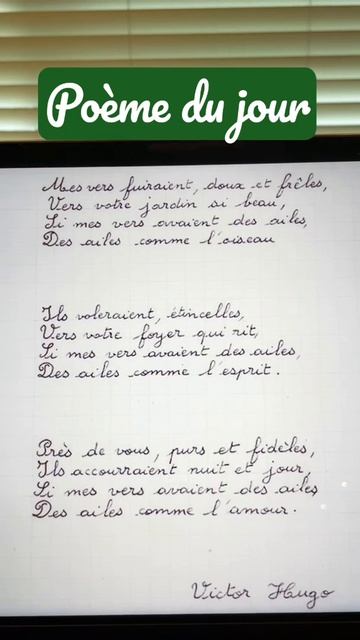 Poème du jour
Mes vers fuiraient, doux et frêles,
Vers votre jardin si beau,
Si mes vers avaient des ailes,
Des ailes comme l'oiseau
Ils voleraient, étincelles,
Vers votre foyer qui rit,
Si mes vers avaient des ailes,
Des ailes comme l'esprit.
Près de vous, purs et fidèles,
Ils accourraient nuit et jour,
Si mes vers avaient des ailes
Des ailes comme l'amour.
Victor Hugo